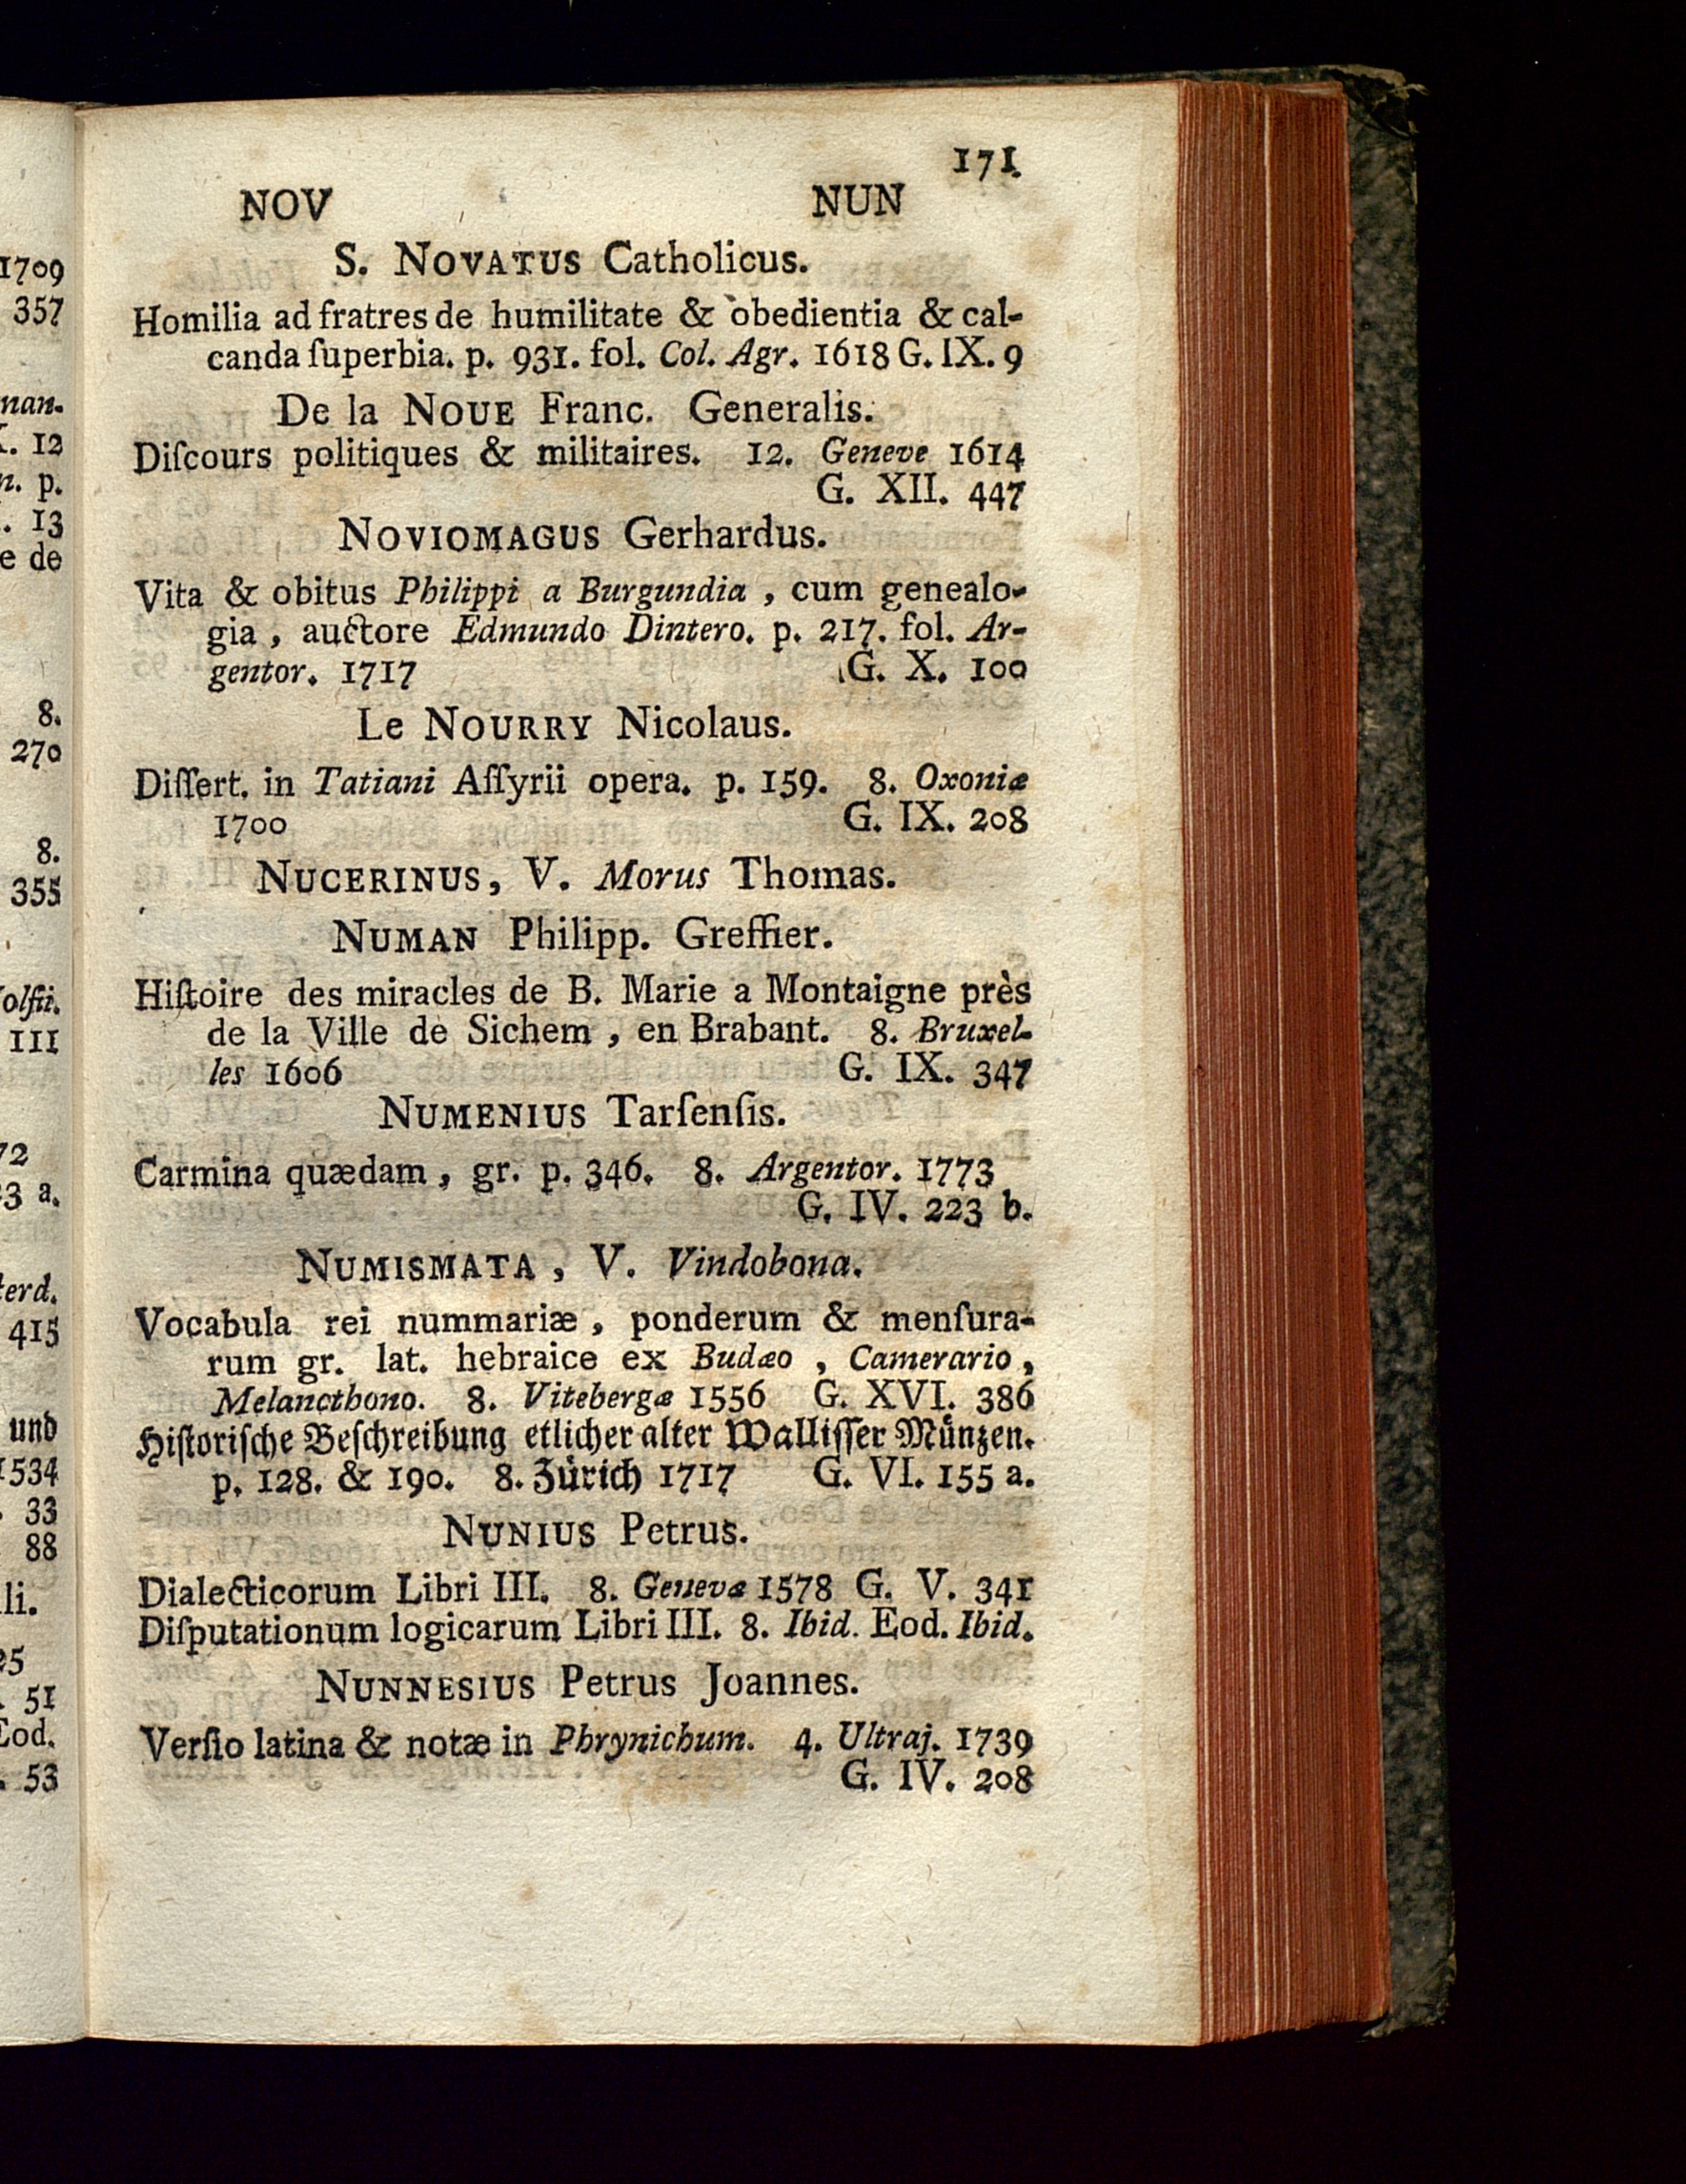 1709
357
nan-
. 12
n. p.
. 13
e de
8.
270
8.
355
olſii.
III
72
3 a.
erd.
415
und
1534
33
88
li.
25
51
Eod.
. 53
171
NOV NUN
S. NOVATUS Catholicus.
Homilia ad fratres de humilitate & obedientia & cal-
canda ſuperbia. p. 931. fol. Col. Agr. 1618 G. IX. 9
De la NOUE Franc. Generalis.
Diſcours politiques & militaires. 12. Geneve 1614
G. XII. 447
NOVIOMAGUS Gerhardus.
Vita & obitus Philippi a Burgundia, cum genealo-
gia, auctore Edmundo Dintero. p. 217. fol. Ar-
gentor. 1717 G. X. 100
Le NOURRY Nicolaus.
Diſſert. in Tatiani Aſſyrii opera. p. 159. 8. Oxoniæ
1700 G. IX. 208
NUCERINUS, V. Morus Thomas.
NUMAN Philipp. Greffier.
Hiſtoire des miracles de B. Marie a Montaigne près
de la Ville de Sichem, en Brabant. 8. Bruxel-
les 1606 G. IX. 347
NUMENIUS Tarſenſis.
Carmina quædam, gr. p. 346. 8. Argentor. 1773
G. IV. 223 b.
NUMISMATA, V. Vindobona.
Vocabula rei nummariæ, ponderum & menſura-
rum gr. lat. hebraice ex Budæo, Camerario,
Melancthono. 8. Vitebergæ 1556 G. XVI. 386
Hiſtoriſche Beſchreibung etlicher alter Walliſſer Münzen.
p. 128. & 190. 8. Zürich 1717 G. VI. 155 a.
NUNIUS Petrus.
Dialecticorum Libri III. 8. Genevæ 1578 G. V. 341
Diſputationum logicarum Libri III. 8. Ibid. Eod. Ibid.
NUNNESIUS Petrus Joannes.
Verſio latina & notæ in Phrynichum. 4. Ultraj. 1739
G. IV. 208